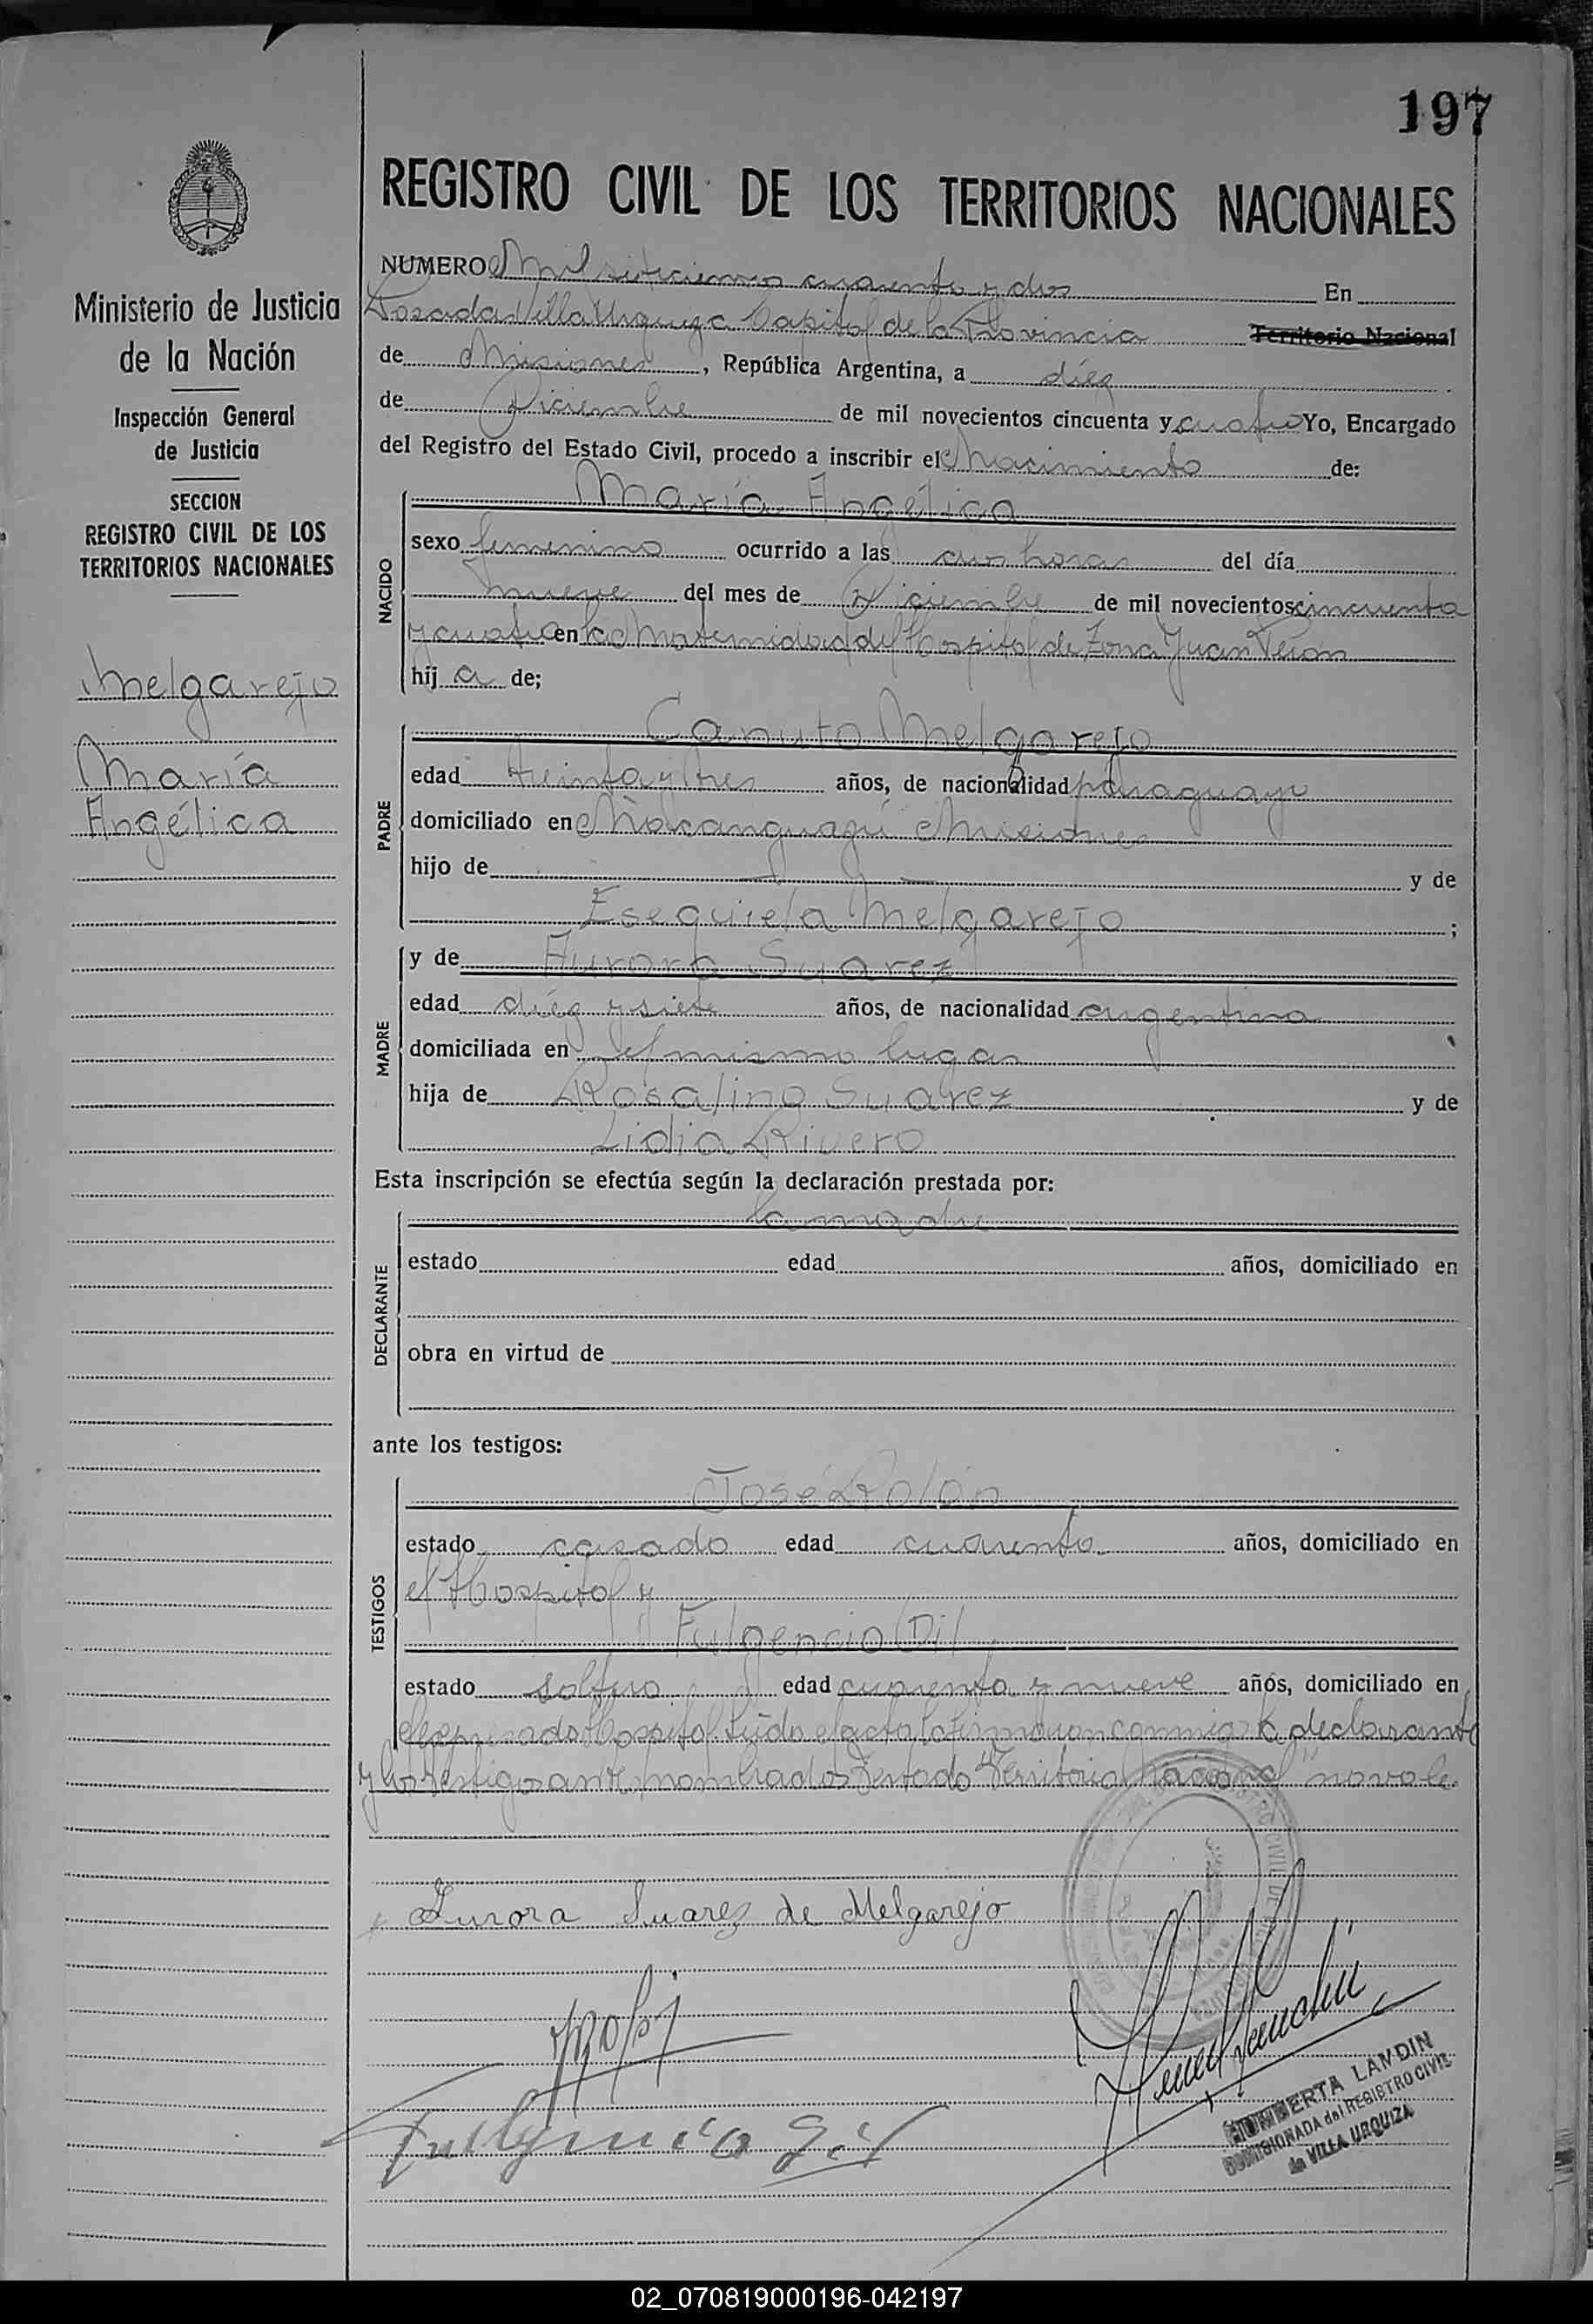 197
REGISTRO CIVIL DE LOS TERRITORIOS NACIONALES
Ministerio de Justicia
de la Nación
Inspección General
de Justicia
SECCION
REGISTRO CIVIL DE LOS
TERRITORIOS NACIONALES
Melgarejo
María
Angélica
NUMERO Mil setecientos cuarenta y dos En
Posadas Villa Urquiza Capital de la Provincia Territorio Nacional
de Misiones, República Argentina, a diez
de Diciembre de mil novecientos cincuenta y cuatro Yo, Encargado
del Registro del Estado Civil, procedo a inscribir el Nacimiento de:
NACIDO
María Angélica
sexo femenino ocurrido a las horas del día
nueve del mes de Diciembre de mil novecientos cincuenta
y cuatro en la Maternidad del Hospital de Zona Juan Perón
hij a de;
PADRE
Canuto Melgarejo
edad treinta y tres años, de nacionalidad paraguayo
domiciliado en Misiones
hijo de y de
Esequiela Melgarejo;
MADRE
y de Aurora Suarez
edad diez y siete años, de nacionalidad argentina
domiciliada en el mismo lugar
hija de Rosalino Suarez y de
Lidia Rivero
Esta inscripción se efectúa según la declaración prestada por:
DECLARANTE
la madre
estado edad años, domiciliado en
obra en virtud de
ante los testigos:
TESTIGOS
José Rolón
estado casado edad cuarenta años, domiciliado en
el Hospital y
Fulgencio Gil
estado soltero edad cuarenta y nueve años, domiciliado en
el expresado Hospital. Leída el acta la firmaron conmigo la declarante
y los testigos antes nombrados Testado "Territorio Nacional" no vale
Aurora Suarez de Melgarejo
Fulgencio Gil
HUMBERTA LANDIN
COMISIONADA del REGISTRO CIVIL
de VILLA URQUIZA
02_070819000196-042197